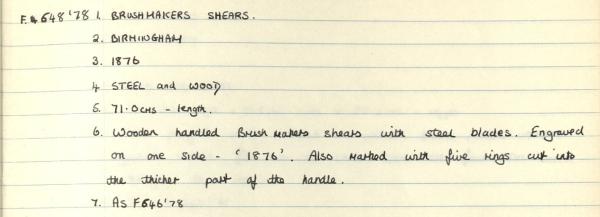 F.648'78 1. BRUSHMAKERS SHEARS.
2. BIRMINGHAM
3. 1876
4 STEEL and WOOD
5. 71.0cms - length.
6. Wooden handled Brush Makers shears with steel blades. Engraved
on one side - '1876'. Also marked with five rings cut into
the thicker part of the handle.
7. As F646'78